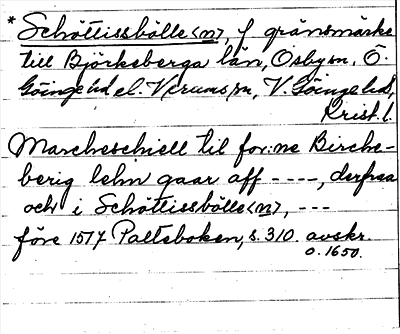 * Schöttissbölle<n>, f gränsmärke
till Björkeberga län, Osby sn, Ö.
Göinge hd el. Verums sn, V. Göinge hd,
Krist. l.
Marcheschiell til for:ne Birche-
berig lehn gaar aff ----, derfraa
och i Schöttissbölle<n>, ---
före 1577 Paltsboken, s. 310. avskr.
o. 1650.